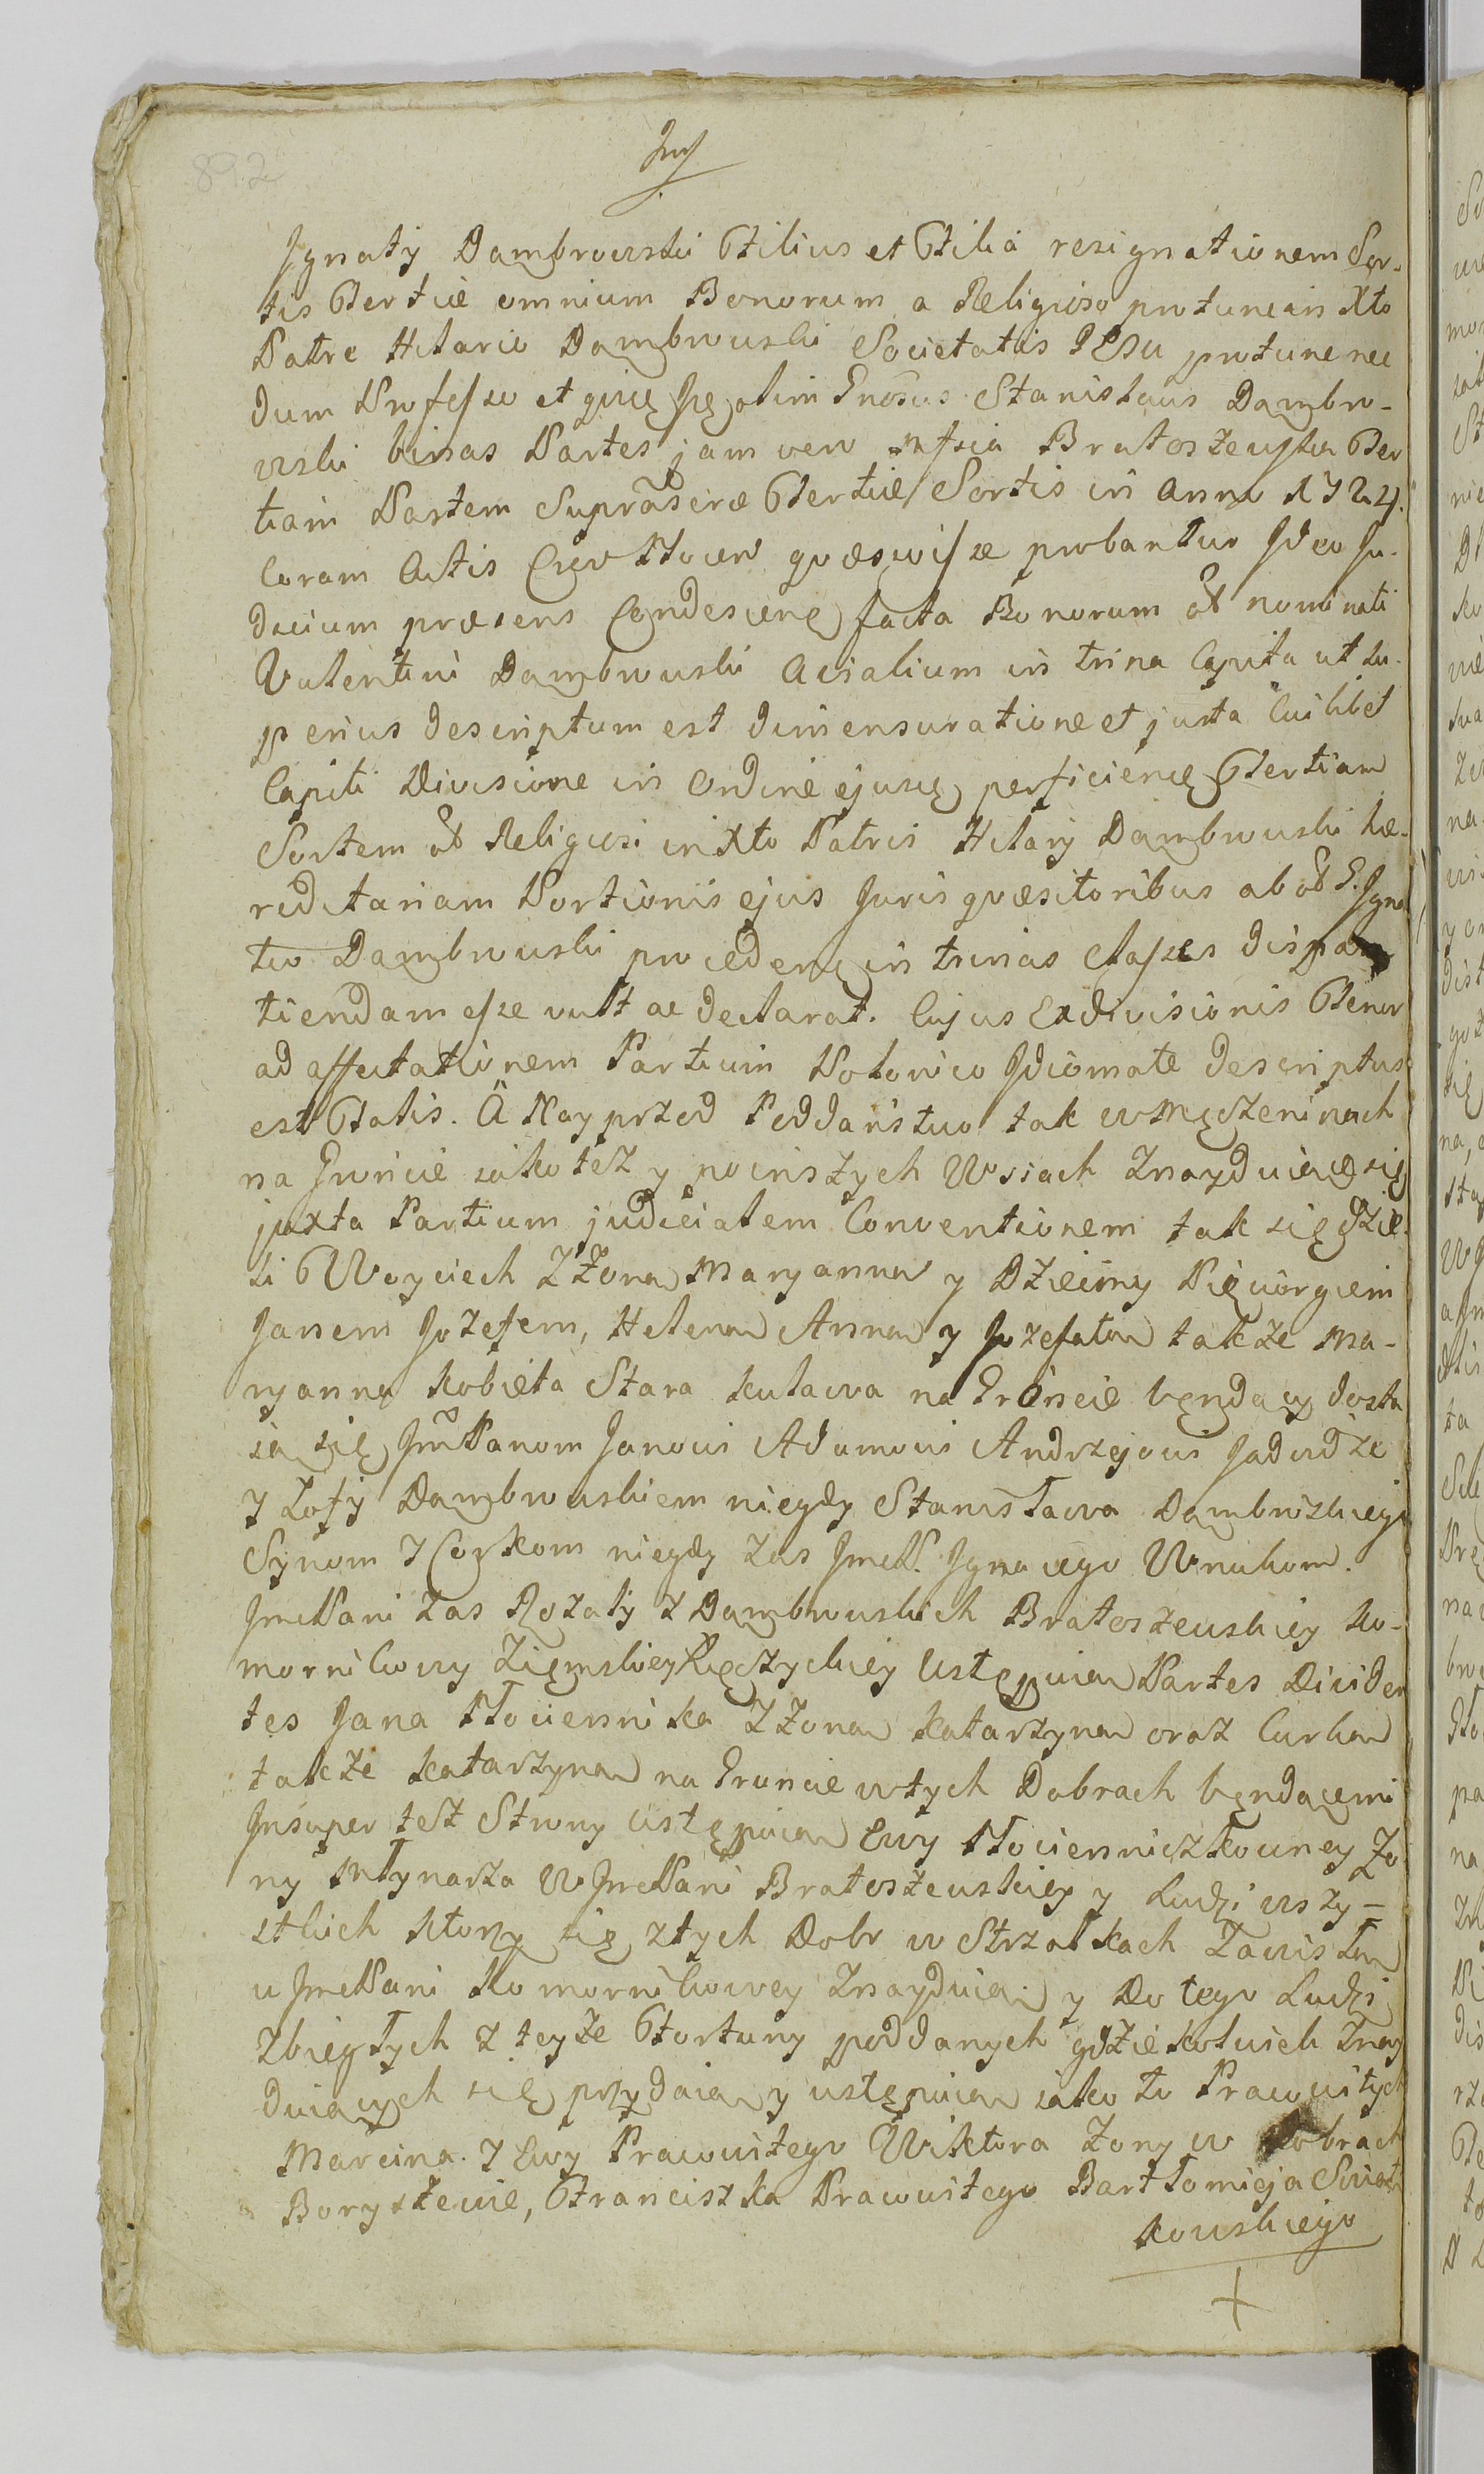 892
Ignaty Dambrowski Filius et Filia resignationem Sor-
tis Tertiæ omnium Bonorum a Religioso protunc in Xto
Patre Hilario Dambrowski Societatis JESu protunc nec
dum Professo et olim Gnosus Stanislaus Dambro-
wski binas Partes jam vero Mfica Bratoszewska Ter
tiam Partem Suprascræ Tertiæ Sortis in Anno 1724.
Coram Actis quæsivisse probantur Ideo Ju-
dicium præsens Condescenς facta Bonorum olim nominati
Valentini Dambrowski Avialium in trina Capita ut su-
perius descriptum est dimensuratione et justa Cuilibet
Capiti Divisione in Ordine ejusq perficienς Tertiam
Sortem olim Religiosi in Xto Patris Hilarij Dambrowski hæ-
reditariam Portionis ejus Juris quæsitoribus ab olim G. Igna
tio Dambrowski procedenς in trinas classes dispar
tiendam esse vult ac declarat. Cujus Exdivisionis Tenor
ad affectationem Partium Polonico Idiomate descriptus
est Talis. A Nayprzod Poddanstwo tak w Męczeninach
na Gruncie iako tesz y po inszych Wsiach znayduiące się
juxta Partium judicialem Conventionem tak się dzie-
li Woyciech z Żoną Maryanną y Dziecmy Pięciorgiem
Janem Jozefem, Heleną Anną y Jozefatą takze Ma-
ryanna Kobieta Stara kulawa na Gruncie będący dosta
ią się Jm Panom Janowi Adamowi Andrzejowi Jadwidze
y Zofij Dambrowskiem niegdy Stanisława Dambrowskiego
Synom y Corkom niegdy zas Jmc P. Ignacego Wnukom.
Jmc Pani zas Rozaly z Dambrowskich Bratoszewskiey Ko-
mornikowy Ziemskiey Łęczyckiey Ustępuią Partes Dividen
tes Jana Płociennika z Żoną Katarzyną oraz Curką
takze Katarzyną na Gruncie w tych Dobrach bendącemi
Insuper tesz Strony ustępuią Ewy Płocienniczkowney Żo
ny Młynarza W Jmc Pani Bratoszewskiey y Ludzi wszy-
stkich ktorzy się z tych Dobr w Strzałkach Zawisłą
u Jmc Pani Komornikowey znayduią y Do tego Ludzi
Zbiegłych z teyze Fortuny poddanych gdziekolwiek znay
duiących się przydaią y ustępuią iako to Pracowitych
Marcina y Ewy Pracowitego Wiktora zony w Dobrach
Boryszewie, Franciszka Pracowitego Bartłomieja Swiąt
kowskiego